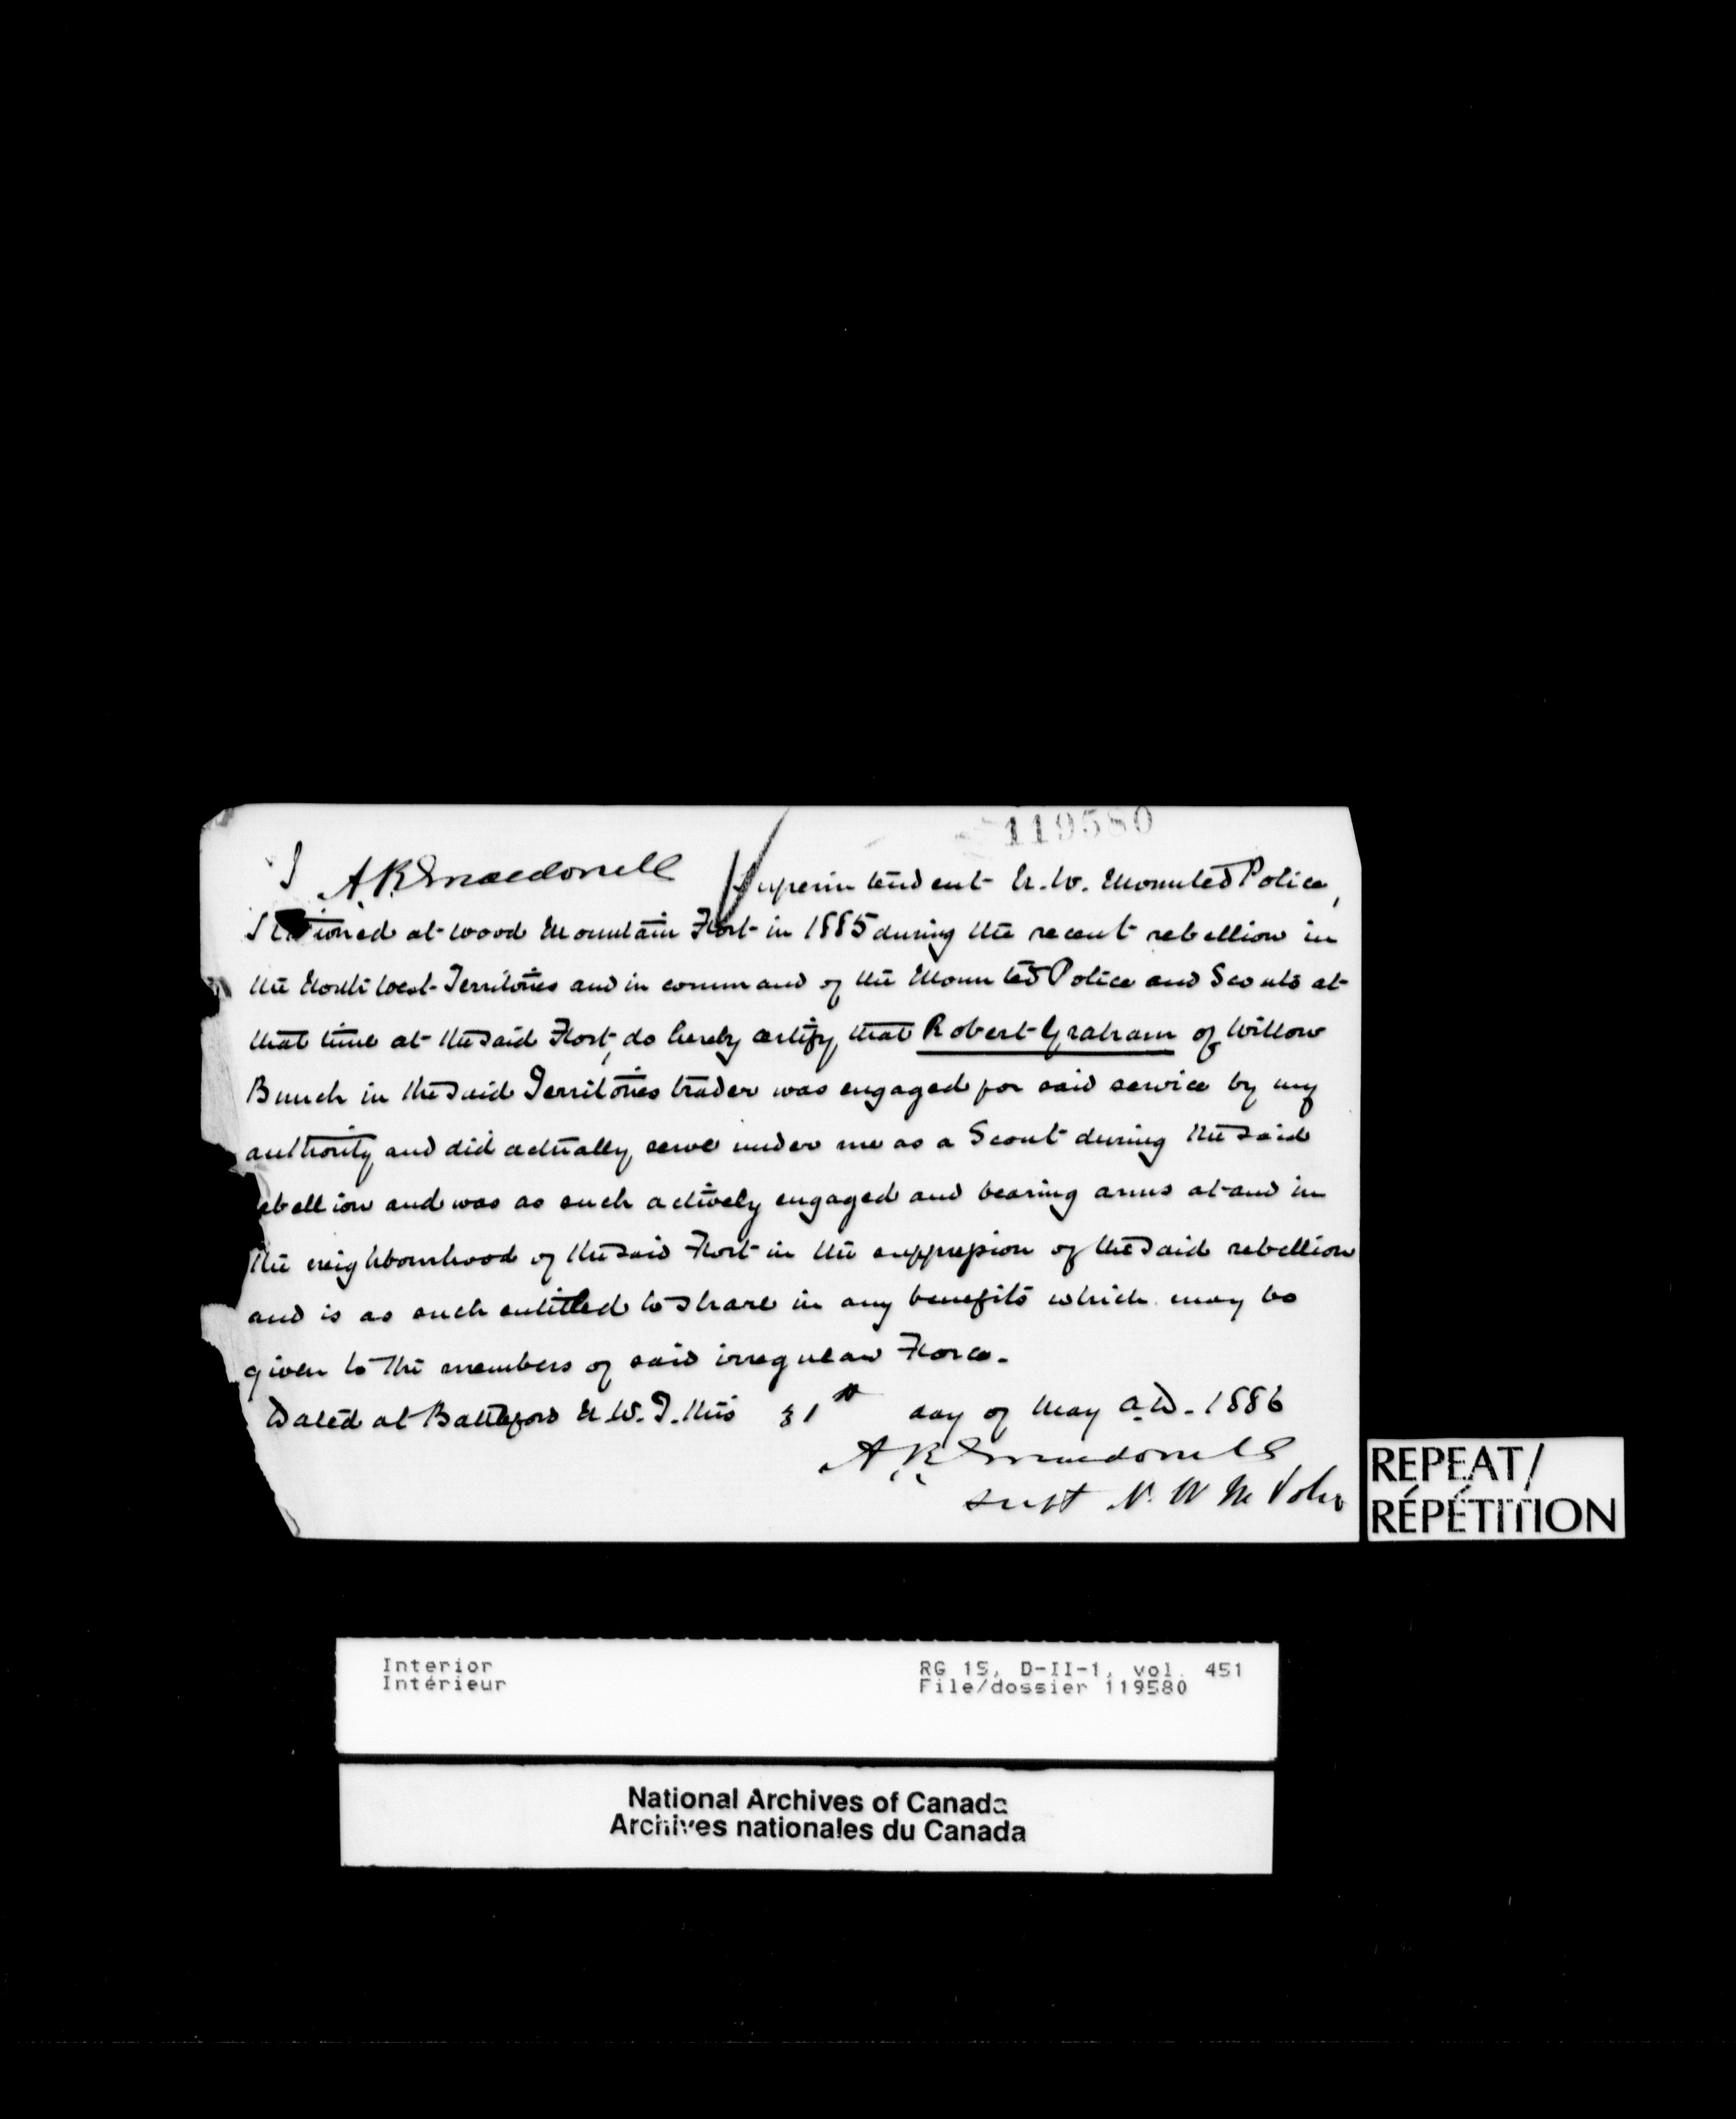 119580
I A. R. Macdonell Superintendent N.W. Mounted Police,
Stationed at Wood Mountain Fort in 1885 during the recent rebellion in
the North West Territories and in command of the Mounted Police and Scouts at
that time at the said Fort, do hereby certify that Robert Graham of Willow
Bunch in the said Territories trader was engaged for said service by my
authority and did actually serve under me as a Scout during the said
rebellion and was as such actively engaged and bearing arms at and in
the neighbourhood of the said Fort in the suppression of the said rebellion
and is as such entitled to share in any benefits which may be
given to the members of said irregular Force.
Dated at Battleford N.W.T. this 31st day of May A.D. 1886
A. R. Macdonell
Supt N. W. M. Police
REPEAT/
RÉPÉTITION
Interior RG 15, D-II-1, vol. 451
Intérieur File/dossier 119580
National Archives of Canada
Archives nationales du Canada